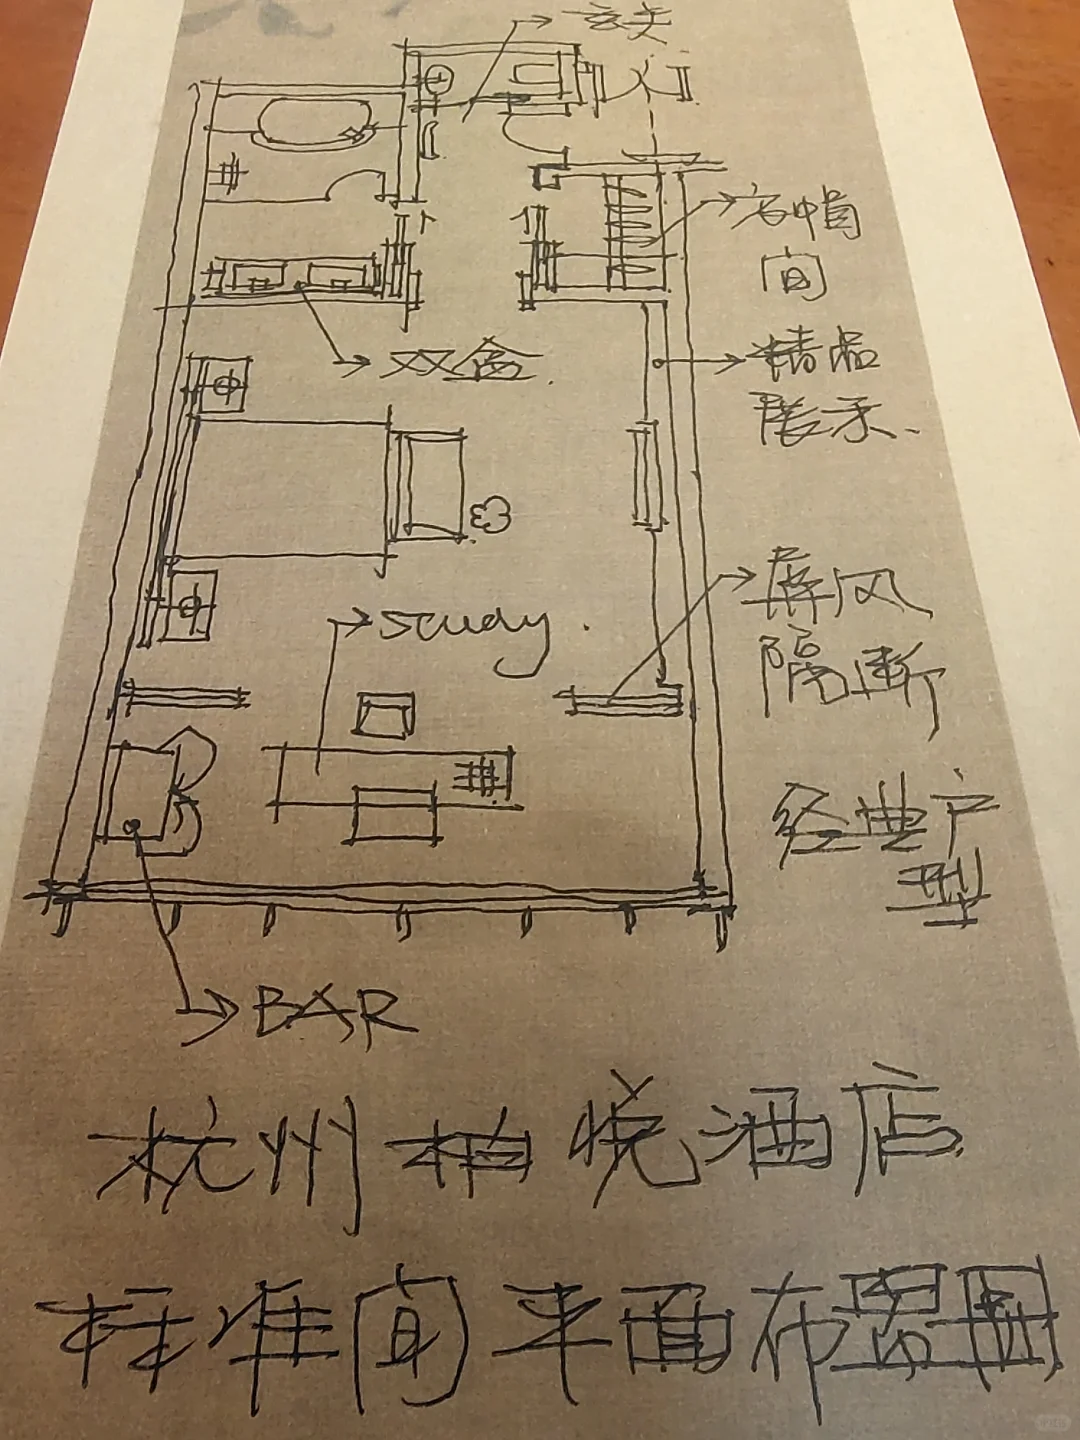 玄关
衣帽
间
精品
展示.
双盆.
屏风
隔断
study.
经典户
型
BAR
杭州柏悦酒店
标准间平面布置图